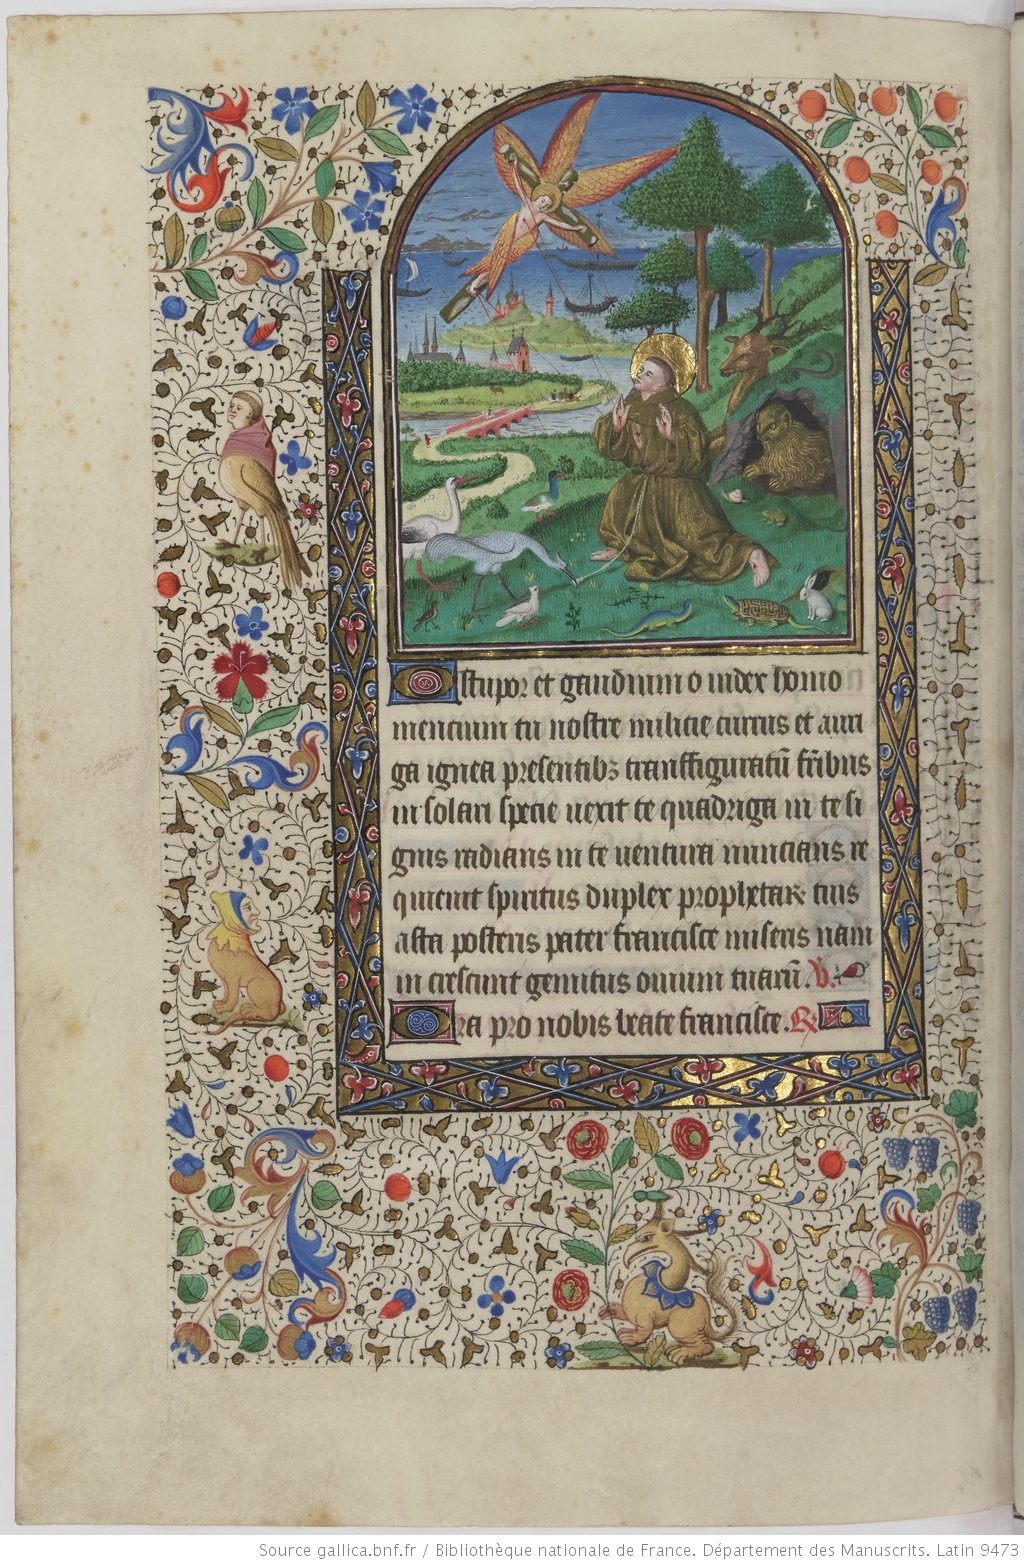 O stupor et gaudium o iudex homo
mencium tu nostre milicie currus et auri
ga ignea presentibꝫ transffiguratū fr̄ibus
in solari specie uexit te quadriga in te si
gnis radians in te uentura nuncians re
quieuit spiritus duplex prophetaꝝ tuis
asta posteris pater francisce miseris nam
in crescunt gemitus ouium tuarū. V̷.
Ora pro nobis beate francisce. R̷.
Source gallica.bnf.fr / Bibliothèque nationale de France. Département des Manuscrits. Latin 9473